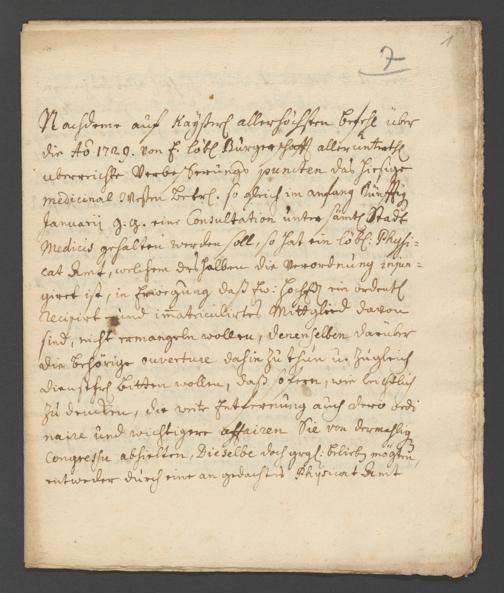 7
1
Nachdeme auf Kaÿserl allerhöchsten befehl über
die Ao 1729. von E. löbl Bürgerschafft allerunterth.
überreichte Verbesserungs puncten das hiesige
medicinal Wesen betrf. so gleich im anfang künfftig
Januarij g. G. eine Consultation unter sämtl Stadt
Medicis gehalten werden soll, so hat ein löbl: Physi-
cat Amt, welchem deshalben die Verordnung injun-
girt ist, in Erwegung daß Ew: ein ordentl
Recipirt und immatriculirtes Mittglied davon
sind, nicht ermangeln wollen, denenselben darüber
die behörige ouverture dahin zu thun u. zugleich
dienstfrl bitten wollen, daß, ofern, wie leichtlich
zu dencken, die weite Entfernung auch dero ordi
naire und wichtigere affairen Sie von dermahlig
Congressu abhielten, Dieselbe doch grgl: belieben mögten
entweder durch eine an gedachtes Physicat Amt